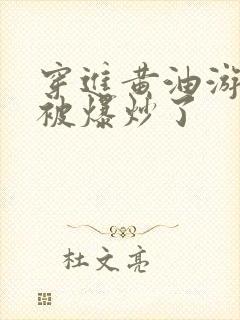 穿进黄油游
被爆炒了
杜文亮